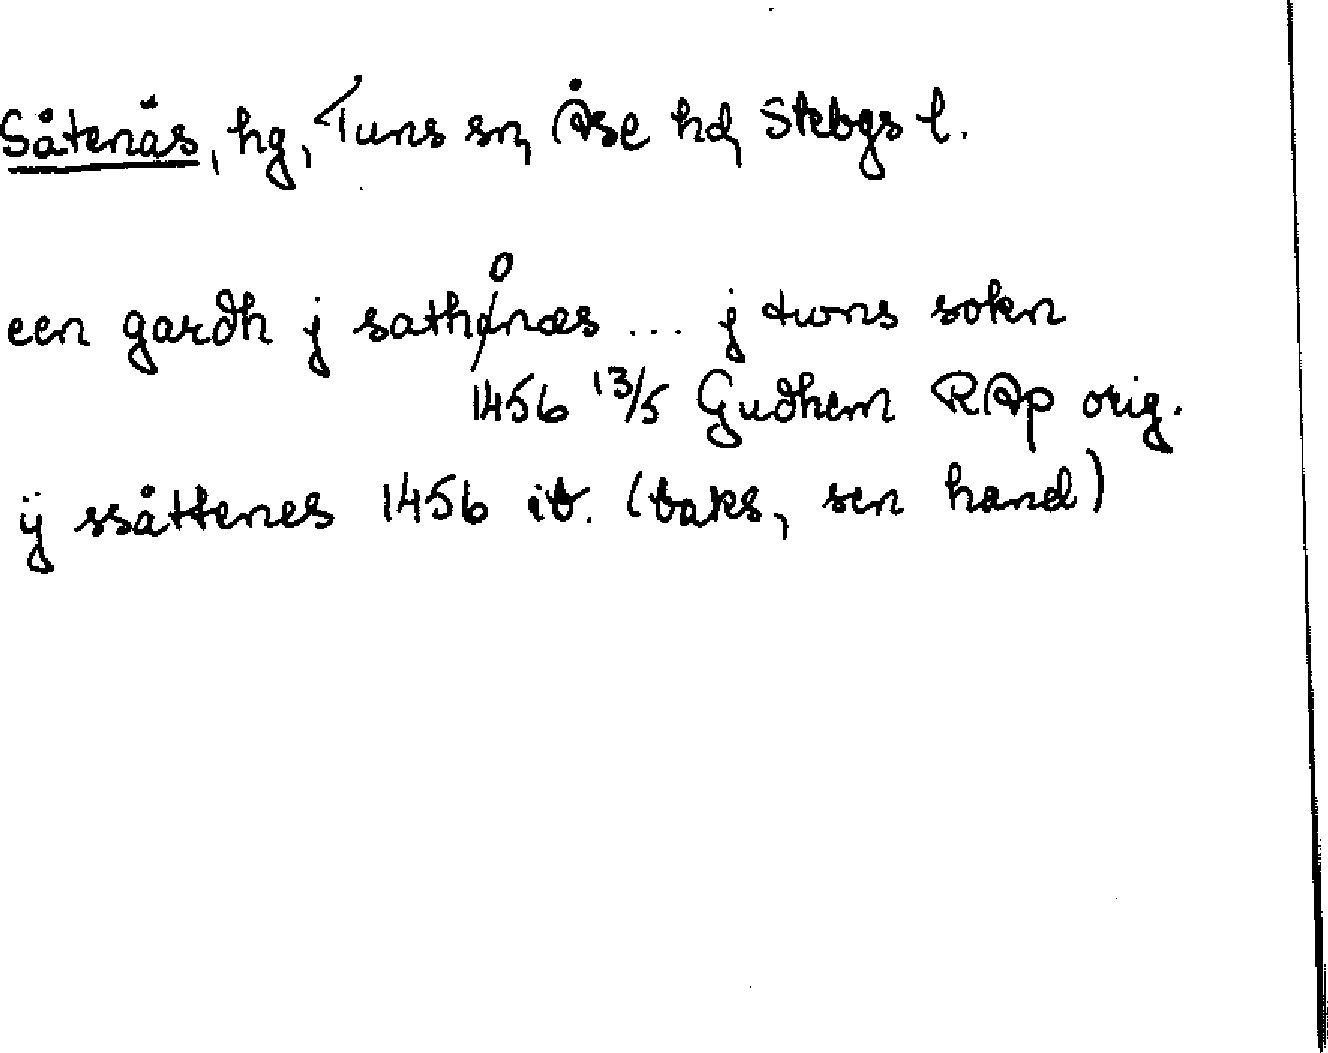 Såtenäs, hg, Tuns sn, Åse hd, Skbgs l.
een gardh j sathønæs ... j twns sokn
1456 13/5 Gudhem RAp orig.
ij ssåttenes 1456 ib. (baks, sen hand)